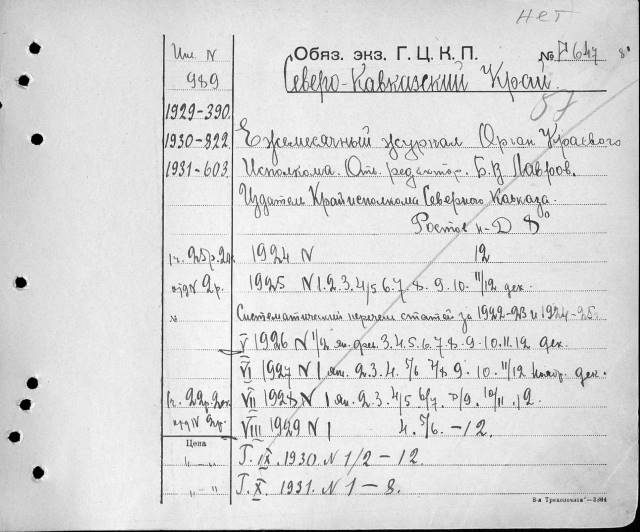 нет
Инв. N
989
Обяз. экз. Г. Ц. К. П.
№ Р 647 8°
Северо-Кавказский Край.
57
1929-390.
1930-822. Ежемесячный журнал Орган Краевого
1931-603. Исполкома. Отв. редактор. Б. В. Лавров.
Издатель Крайисполкома Северного Кавказа.
Ростов н-Д 8°
1924 N 12
1925 N 1. 2. 3. 4/5 6. 7. 8. 9. 10. 11/12 дек.
Систематический перечень статей за 1922-23 и 1924-25.
V 1926 N 1/2 ян. фев. 3. 4. 5. 6. 7. 8. 9. 10. 11. 12 дек.
VI 1927 N 1 ян. 2. 3. 4. 5/6 7/8 9. 10. 11/12 ноябр. дек.
VII 1928 N 1 ян. 2. 3. 4/5 6/7. 8/9. 10/11. 12.
VIII 1929 N 1 4. 5/6. -12.
Цена
Г. IX. 1930. N 1/2 - 12.
Г. X. 1931. N 1 - 8.